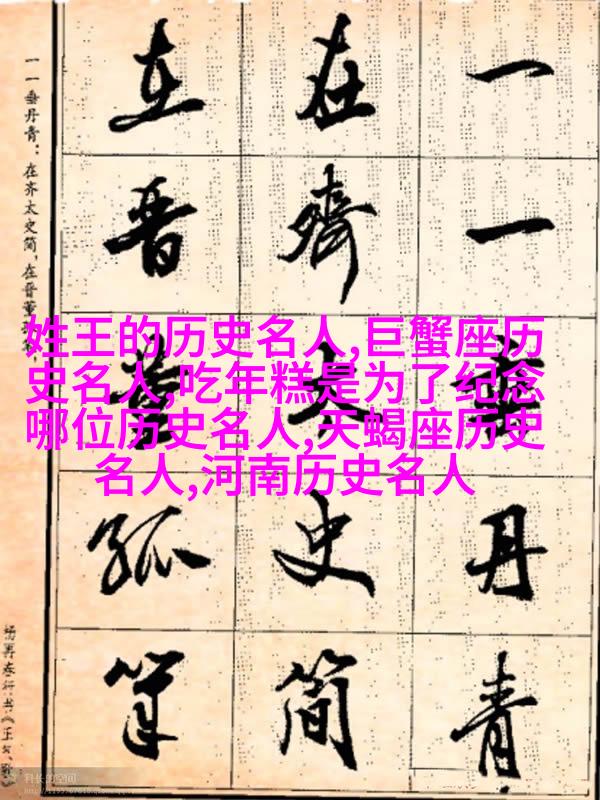 姓王的历史名人,巨蟹座历
史名人,吃年糕是为了纪念
哪位历史名人,天蝎座历史
名人,河南历史名人
一一垂丹青
在齊太史简
在晋董狐筆
一一垂丹青：在齐太史简，在晋董狐笔，
杨再春行书《正气歌》
科长的空间